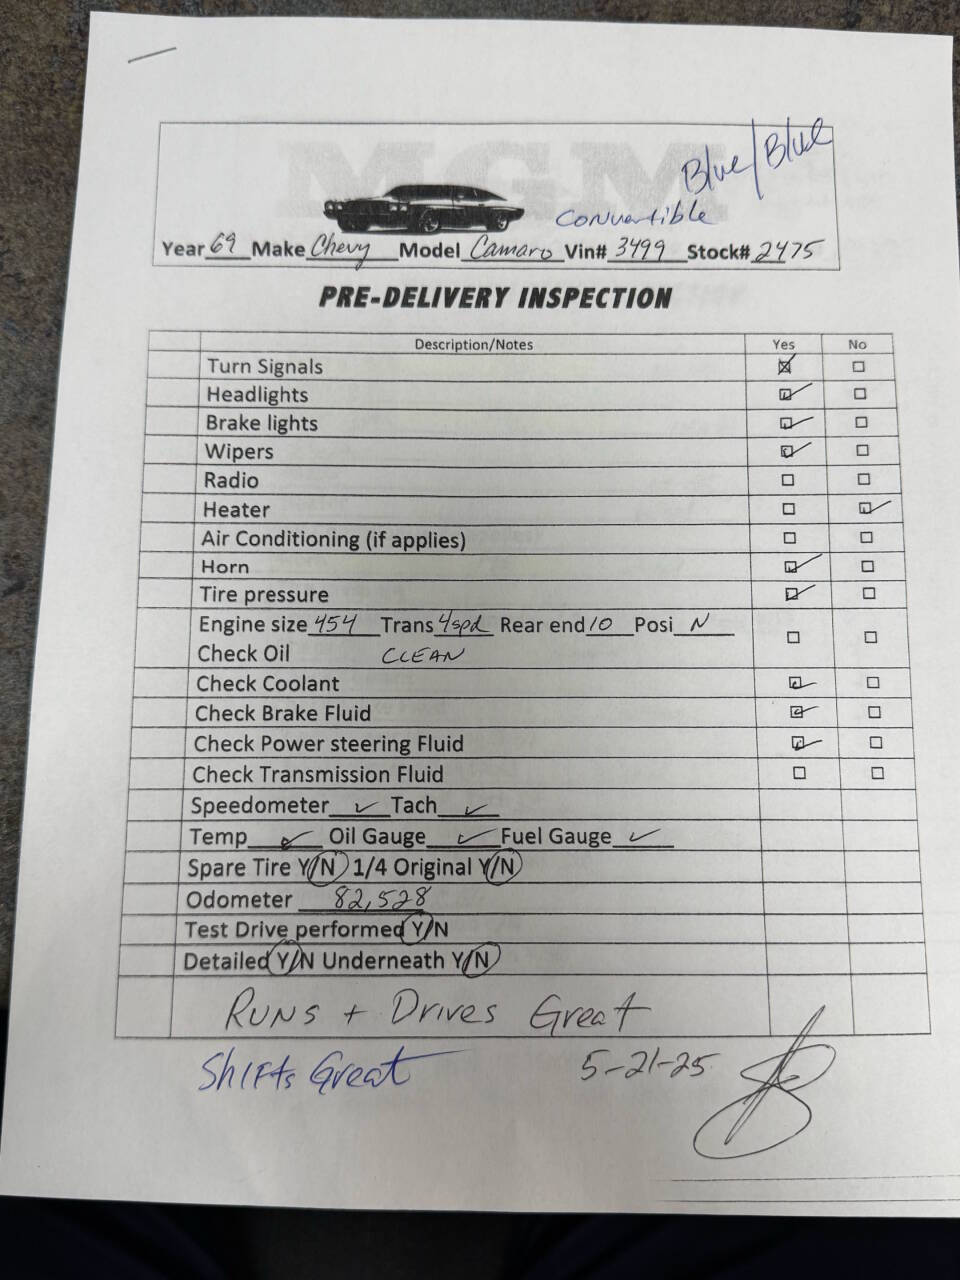 MGM
Blue/Blue
Convertible
Year 69 Make Chevy Model Camaro Vin# 3499 Stock# 2475
PRE-DELIVERY INSPECTION
Description/Notes Yes No
Turn Signals
Headlights
Brake lights
Wipers
Radio
Heater
Air Conditioning (if applies)
Horn
Tire pressure
Engine size 454 Trans 4spd Rear end 10 Posi N
Check Oil CLEAN
Check Coolant
Check Brake Fluid
Check Power steering Fluid
Check Transmission Fluid
Speedometer Tach
Temp Oil Gauge Fuel Gauge
Spare Tire Y/N 1/4 Original Y/N
Odometer 82,528
Test Drive performed Y/N
Detailed Y/N Underneath Y/N
Runs + Drives Great
Shifts Great 5-21-25